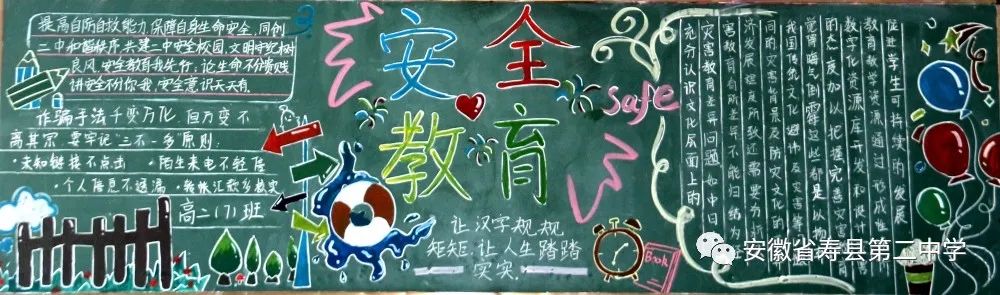 提高自防自救能力,保障自身生命安全,同创
二中和谐秩序,共建二中安全校园,文明守纪树
良风,安全教育我先行,论生命不分贵贱
讲安全不分你我,安全意识天天有
诈骗手法千变万化 但万变不
离其宗 要牢记“三不一多”原则:
·未知链接不点击 ·陌生来电不轻信
·个人信息不透漏 ·转帐汇款多核实
高二(7)班
安全
教育
safe
让汉字规规
矩矩,让人生踏踏
实实
Book
充分认识文化层面上的
灾害教育差异问题,如中日
害教育有所差异不能归结为
济发展程度所致还需要分析
间的灾害背景及防灾文化的
我国传统文化避讳及灾害等
觉得晦气倒霉这些都是从物
的态度加以把握完善灾害
教学化资源库开发和设计
教育教学资源通过形成性
促进学生可持续的发展
安徽省寿县第二中学